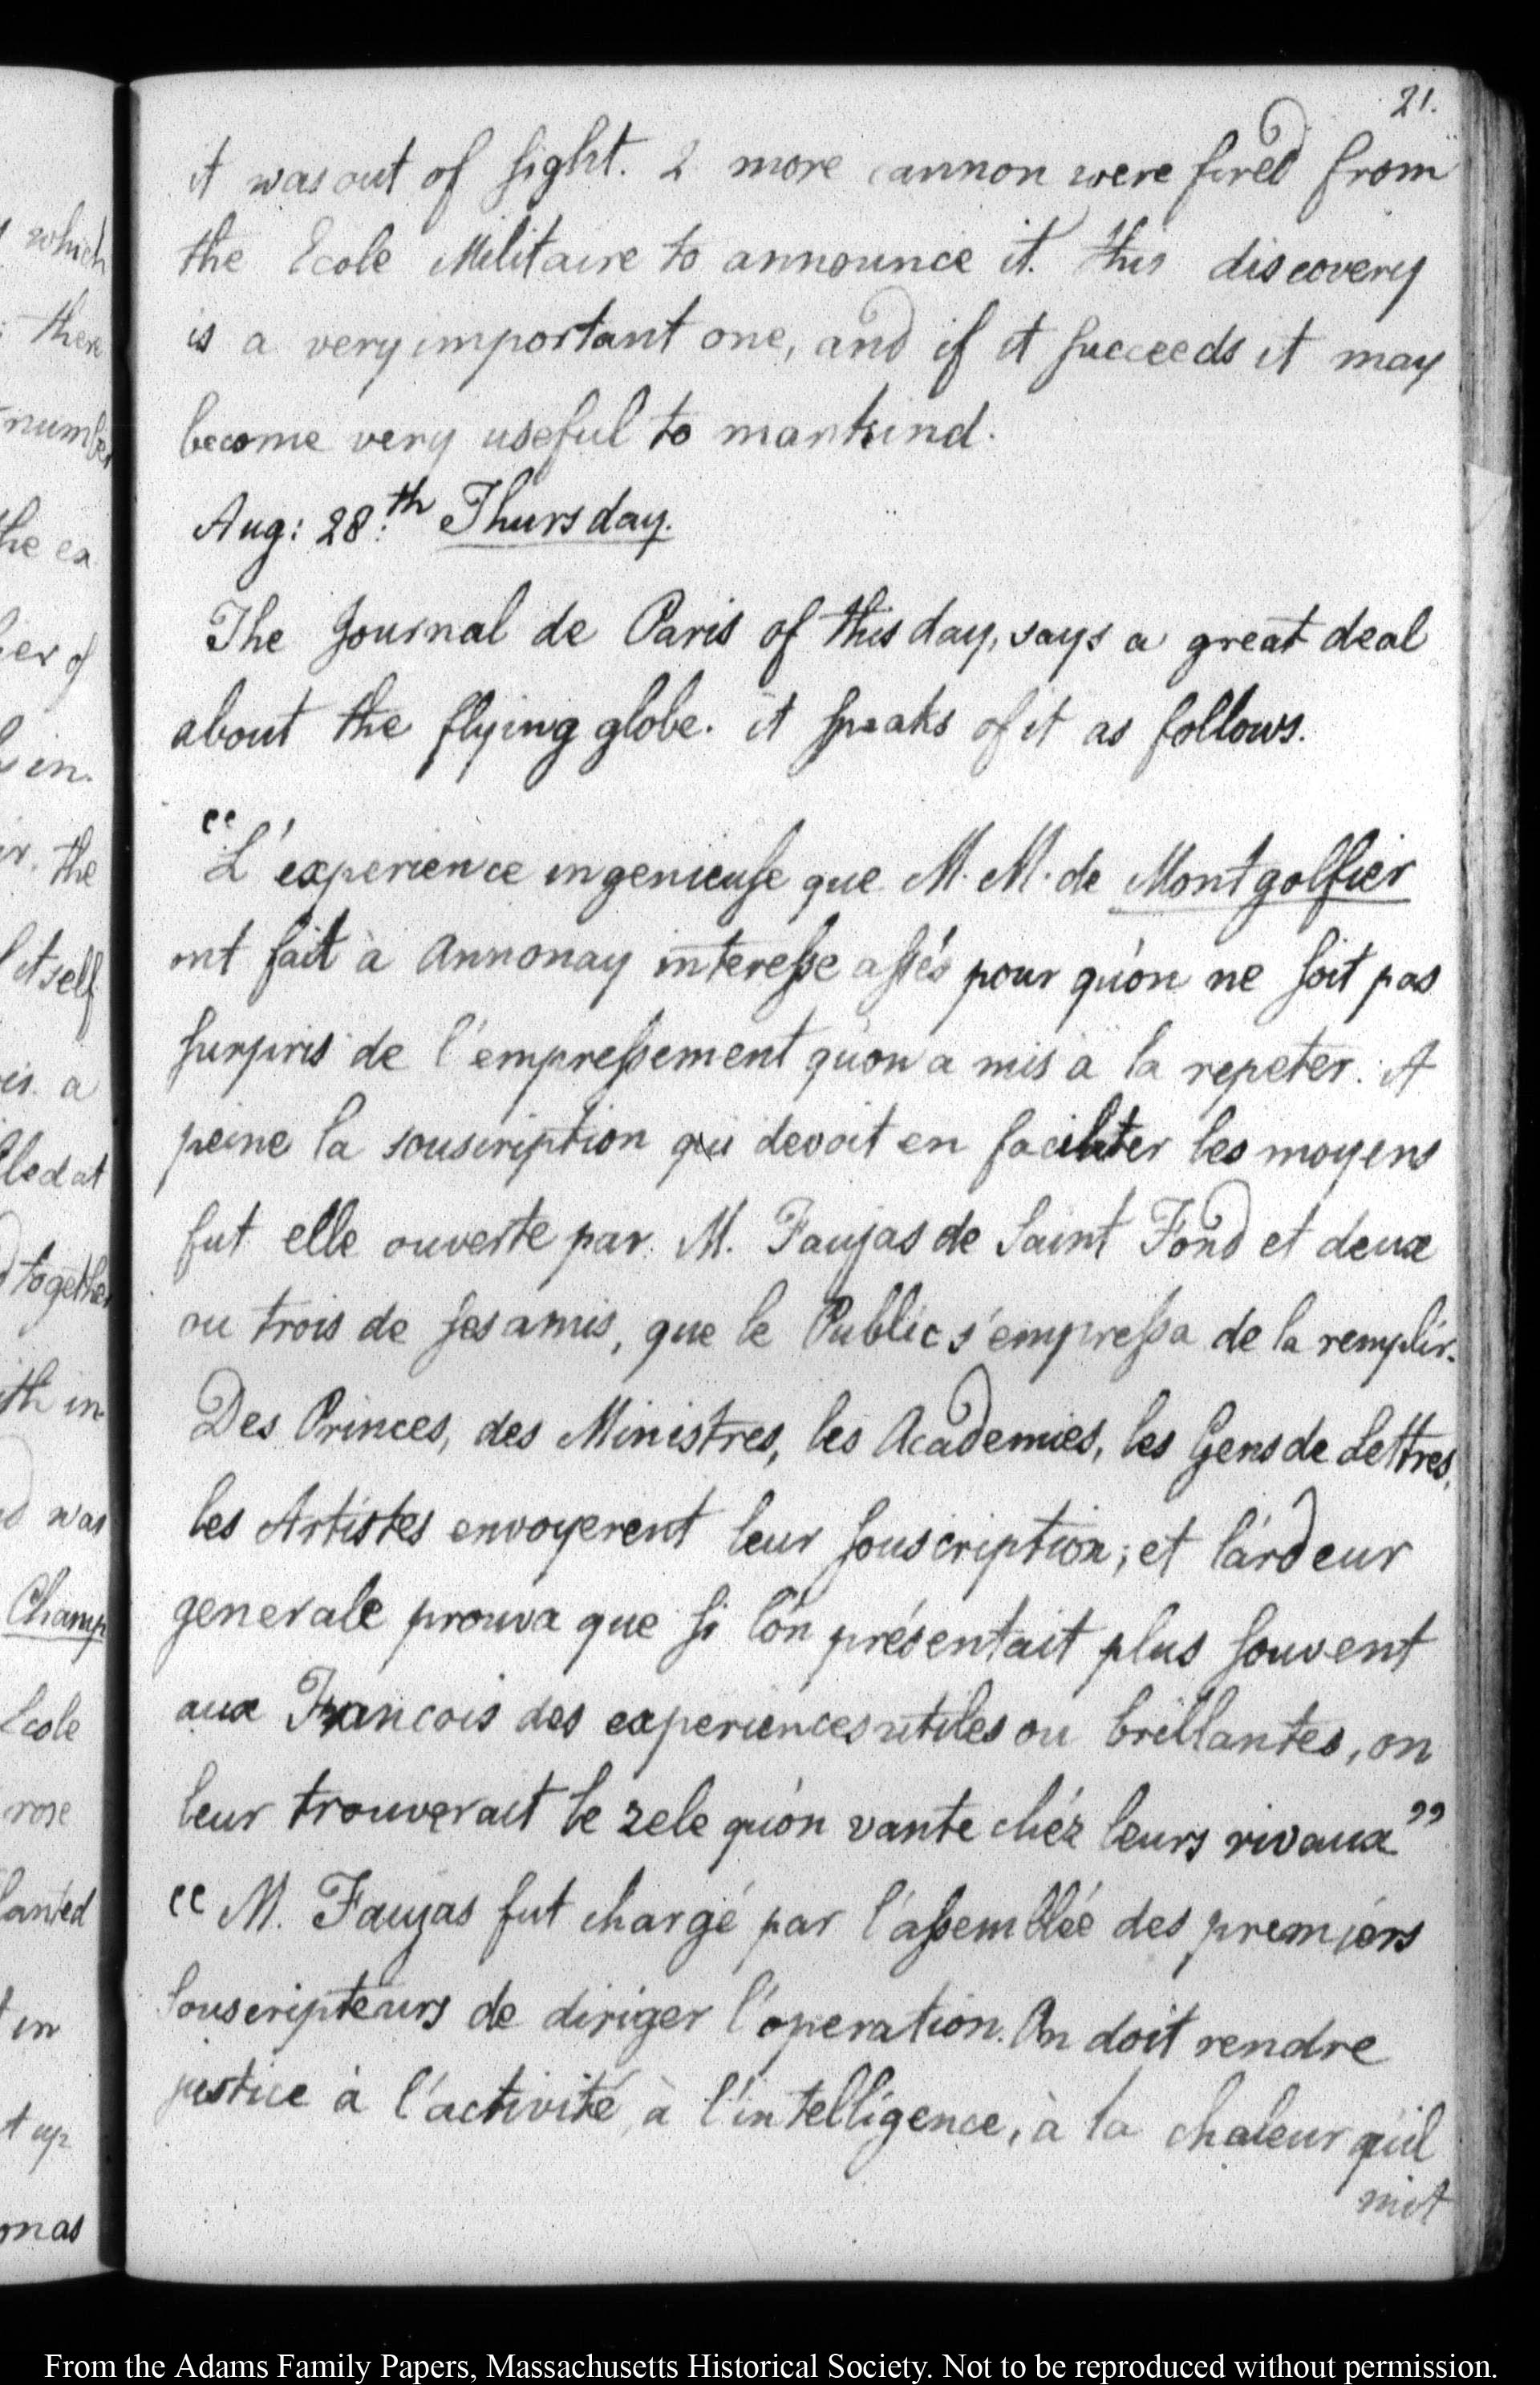 21.
it was out of sight. 2 more cannon were fired from
the Ecole Militaire to announce it. this discovery
is a very important one, and if it succeeds it may
become very useful to mankind.
Aug: 28.th Thursday.
The Journal de Paris of this day, says a great deal
about the flying globe. it speaks of it as follows.
"L'experience ingenieuse que M. M. de Montgolfier
ont fait à Annonay interesse assés pour qu'on ne soit pas
surpris de l'empressement qu'on a mis a la repeter. A
peine la souscription qui devoit en faciliter les moyens
fut elle ouverte par M. Faujas de Saint Fond et deux
ou trois de ses amis, que le Public s'empressa de la remplir.
Des Princes, des Ministres, les Academies, les Gens de Lettres,
les Artistes envoyerent leur souscription; et l'ardeur
generale prouva que si l'on présentait plus souvent
aux Francois des experiences utiles ou brillantes, on
leur trouverait le zele qu'on vante chéz leurs rivaux"
"M. Faujas fut chargé par l'assemblée des premiérs
souscripteurs de diriger l'operation. On doit rendre
justice à l'activité, à l'intelligence, à la chaleur qu'il
mit
which
there
number
the ex
her of
in.
the
itself
a
led at
together
ith in
was
Champ
Ecole
rose
in
t up